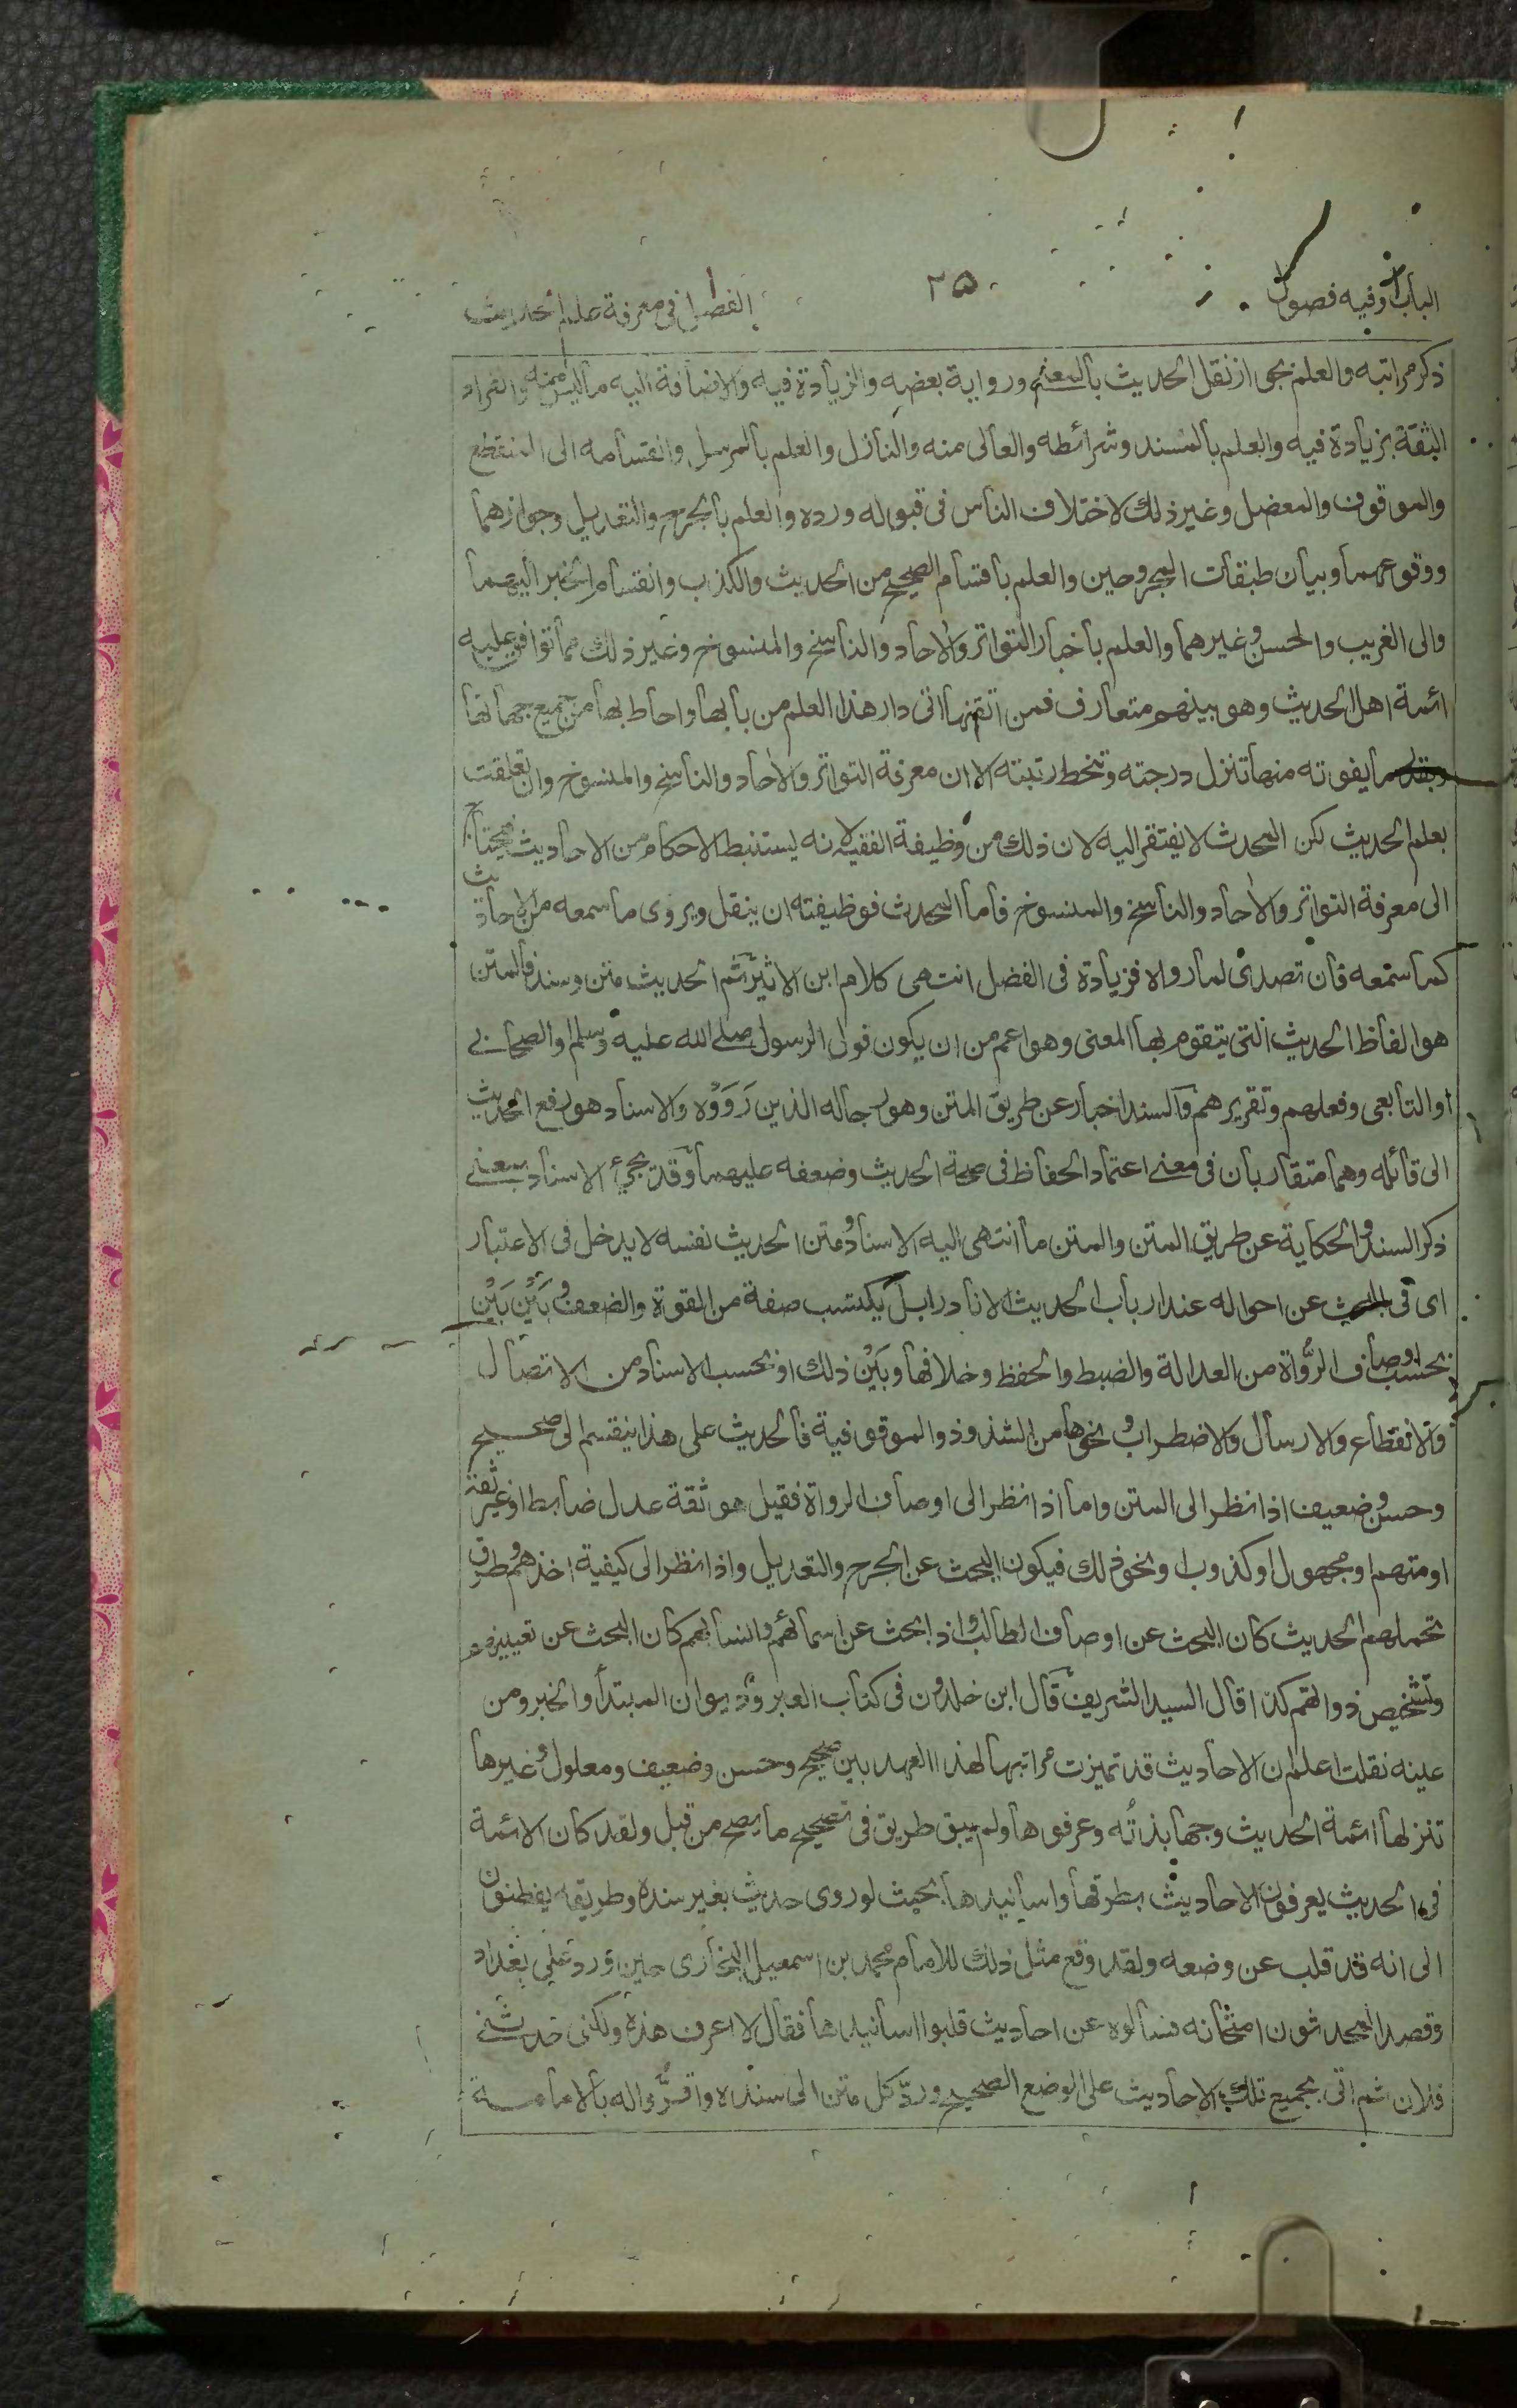 الباب ا وفيه فصول
٢٥
الفصل ا فى معرفة علم الحديث
ذكر مراتبه والعلم بجواز نقل الحديث بالمعنى ورواية بعضه والزيادة فيه والاضافة اليه ماليس منه وانفراد
الثقة بزيادة فيه والعلم بالمسند وشرائطه والعالى منه والنازل والعلم بالمرسل وانقسامه الى المنقطع
والموقوف والمعضل وغير ذلك لاختلاف الناس فى قبوله ورده والعلم بالجرح والتعديل وجوازهما
ووقوعهما وبيان طبقات المجروحين والعلم باقسام الصحيح من الحديث والكذب وانقسام الخبر اليهما
والى الغريب والحسن وغيرهما والعلم باخبار التواتر والأحاد والناسخ والمنسوخ وغير ذلك مما توافق عليه
ائمة اهل الحديث وهو بينهم متعارف فمن اتقنها اتى دار هذا العلم من بابها واحاط بها من جميع جهاتها
وبقدر ما يفوته منها تنزل درجته وتنحط رتبته الا ان معرفة التواتر والأحاد والناسخ والمنسوخ وان تعلقت
بعلم الحديث لكن المحدث لا يفتقر اليه لان ذلك من وظيفة الفقيه لانه يستنبط الاحكام من الاحاديث فيحتاج
الى معرفة التواتر والأحاد والناسخ والمنسوخ فاما المحدث فوظيفته ان ينقل ويروى ما سمعه من الاحاديث
كما سمعه فان تصدى لما رواه فزيادة فى الفضل انتهى كلام ابن الاثير ثم الحديث متن وسند فالمتن
هو الفاظ الحديث التى يتقوم بها المعنى وهو اعم من ان يكون قول الرسول صلے الله عليه وسلم والصحابے
او التابعى وفعلهم وتقريرهم والسند اخبار عن طريق المتن وهو رجاله الذين رَوَوْه والاسناد هو رفع الحديث
الى قائله وهما متقاربان فى معنے اعتماد الحفاظ فى صحة الحديث وضعفه عليهما وقد يجئ الاسناد بمعنے
ذكر السند والحكاية عن طريق المتن والمتن ما انتهى اليه الاسناد ومتن الحديث نفسه لا يدخل فى الاعتبار
اى فى البحث عن احواله عند ارباب الحديث الا نادرا بل يكتسب صفة من القوة والضعف وبَيْن بَيْن
بحسب اوصاف الرُّواة من العدالة والضبط والحفظ وخلافها وبَيْن ذلك او بحسب الاسناد من الاتصال
والانقطاع والارسال والاضطراب ونحوها من الشذوذ والموقوفية فالحديث على هذا ينقسم الى صحيح
وحسن وضعيف اذا نظر الى المتن واما اذا نظر الى اوصاف الرواة فقيل هو ثقة عدل ضابط او غير ثقة
او متهم او مجهول او كذوب او نحو ذلك فيكون البحث عن الجرح والتعديل واذا نظر الى كيفية اخذهم وطرق
تحملهم الحديث كان البحث عن اوصاف الطالب واذا بحث عن اسمائهم وانسابهم كان البحث عن تعيينهم
وتشخيص ذواتهم كذا قال السيد الشريف قال ابن خلدون فى كتاب العبر وديوان المبتدأ والخبر ومن
عينه نقلت اعلم ان الاحاديث قد تميزت مراتبها لهذا العهد بين صحيح وحسن وضعيف ومعلول وغيرها
تنزلها ائمة الحديث وجهابذتُه وعرفوها ولم يبق طريق فى تصحيح ما يصح من قبل ولقد كان الائمة
فى الحديث يعرفون الاحاديث بطرقها واسانيدها بحيث لو روى حديث بغير سنده وطريقه يفطنون
الى انه قد قلب عن وضعه ولقد وقع مثل ذلك للامام محمد بن اسمعيل البخارى حين ورد على بغداد
وقصد المحدثون امتحانه فسألوه عن احاديث قلبوا اسانيدها فقال لا اعرف هذه ولكن حدثنے
فلان ثم اتى بجميع تلك الاحاديث على الوضع الصحيح وردّ كل متن الى سنده واقرُّوا له بالامامة